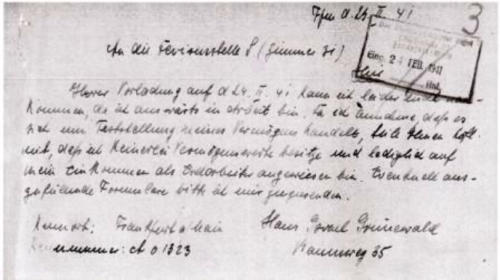 Ffm d 24. II. 41
3
An die Devisenstelle S (Zimmer 31)
Eing. 24. FEB. 1941
Ihrer Vorladung auf d 24. II. 41 kann ich leider nicht
kommen, da ich auswärts in Arbeit bin. Da ich annehme, daß es
sich um Feststellung meines Vermögens handelt, teile Ihnen höfl.
mit, daß ich keinerlei Vermögenswerte besitze und lediglich auf
mein Einkommen als Erdarbeiter angewiesen bin. Eventuell aus-
zufüllende Formulare bitte ich mir zuzusenden.
Kennort: Frankfurt a Main
Hans Israel Grünewald
Kennummer: A 01323
Baumweg 35